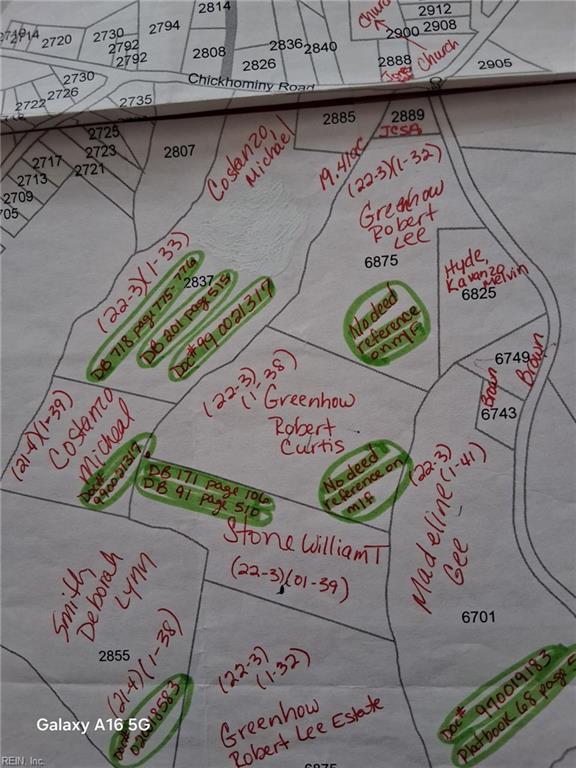 2814
2714
2720
2730
2792
2792
2794
2808
2826
2836
2840
Church
2912
2908
2900
2888
JCSA
Church
2905
Chickhominy Road
2730
2726
2722
2735
2725
2723
2721
2717
2713
2709
2807
2885
2889
JCSA
Costanzo,
Michael
19.41ac
(22-3)(1-32)
Greenhow
Robert
Lee
6875
Hyde,
Kavanzo
Melvin
6825
(22-3)(1-33)
2837
DB 718 page 775-776
DB 201 page 515
Doc# 990021317
No deed
reference
on m/f
6749
Brown
Brown
6743
(22-3)
(1-38)
Greenhow
Robert
Curtis
(21-4)(1-39)
Costanzo
Micheal
Doc#
990021317
DB 171 page 106
DB 91 page 510
No deed
reference on
m/f
(22-3)
(1-41)
Madelline
Gee
Stone William T
(22-3)(01-39)
Smith,
Deborah
Lynn
2855
(21-4)(1-38)
6701
(22-3)
(1-32)
Greenhow
Robert Lee Estate
6875
Doc#
Doc# 990019183
Platbook 68 page 5
Galaxy A16 5G
REIN, Inc.